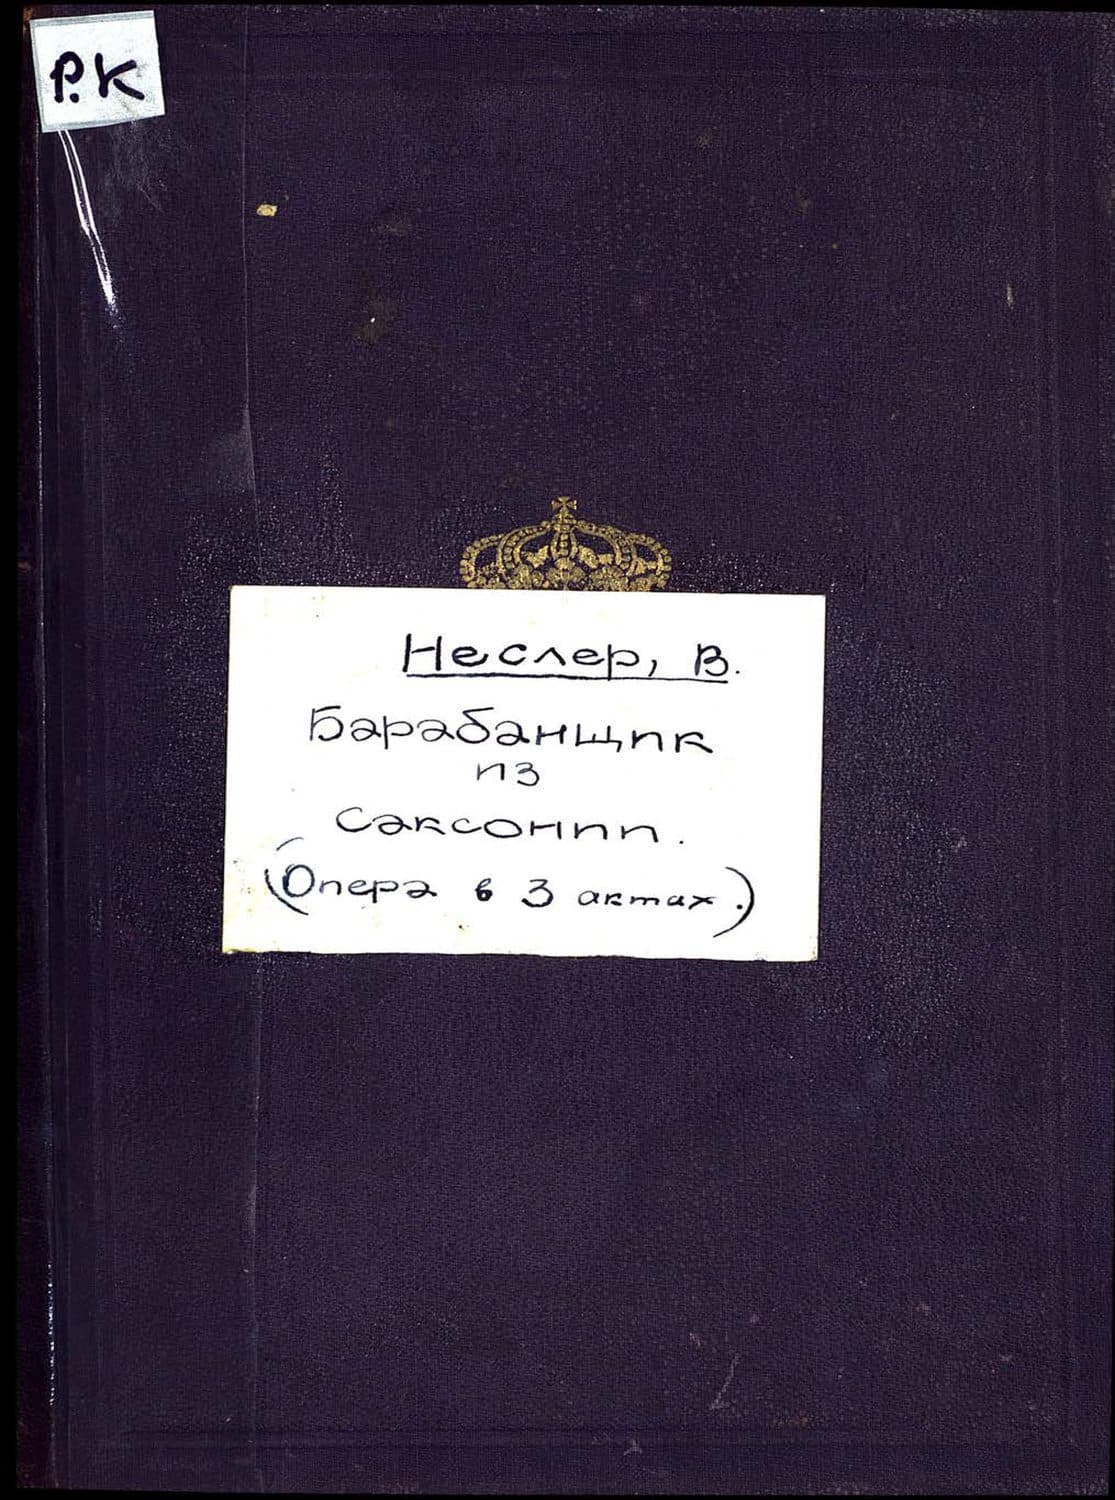 Р.К
Неслер, В.
Барабанщик
из
Саксонии.
(Опера в 3 актах.)